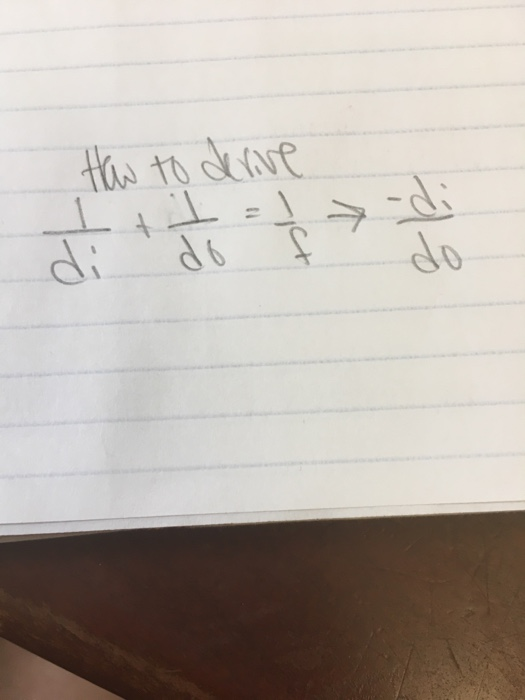 How to derive
1/di + 1/do = 1/f → -di/do